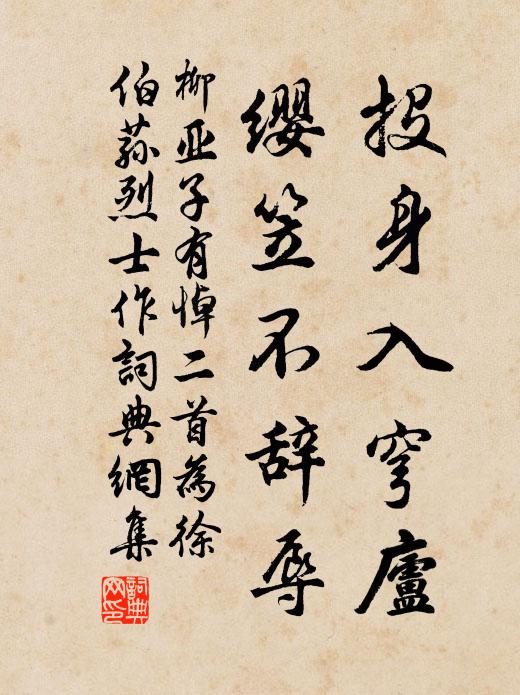 投身入穹廬
纓笠不辞辱
柳亚子有悼二首為徐
伯蓀烈士作詞典網集
詞典网印